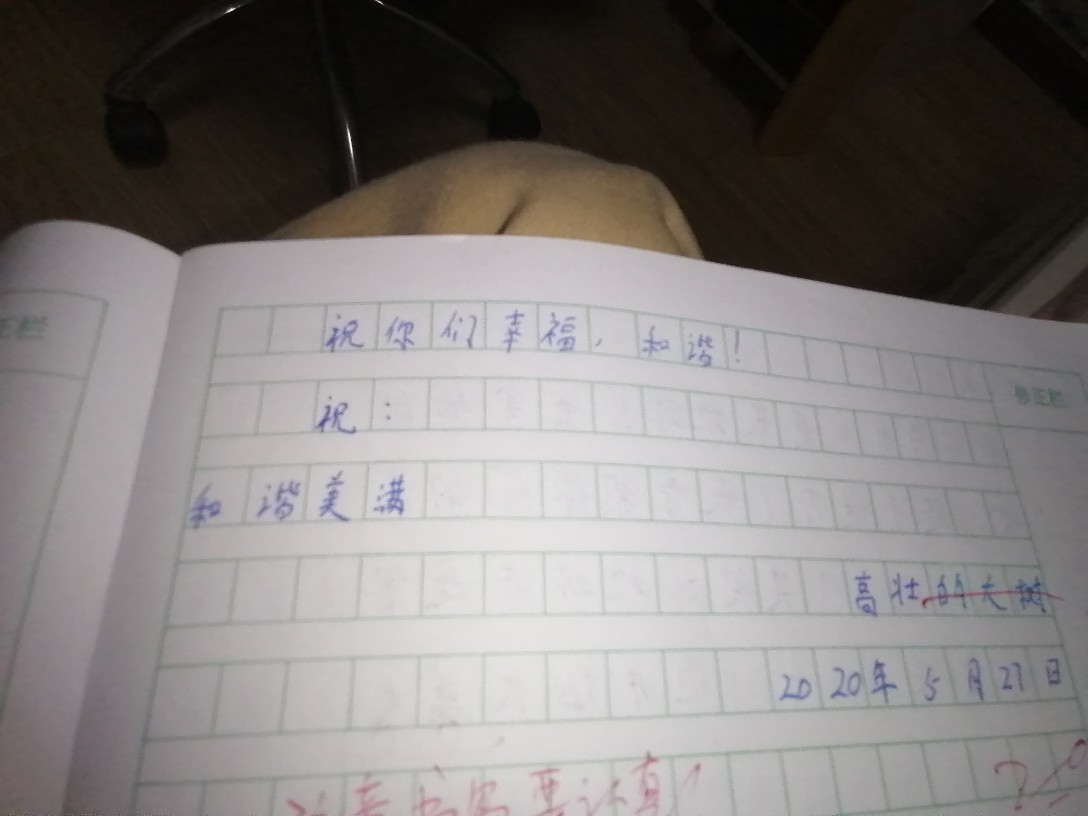 祝你们幸福，和谐！
祝：
和谐美满
高壮的大树
2020年5月27日
注意书写要认真！
修正栏
正栏